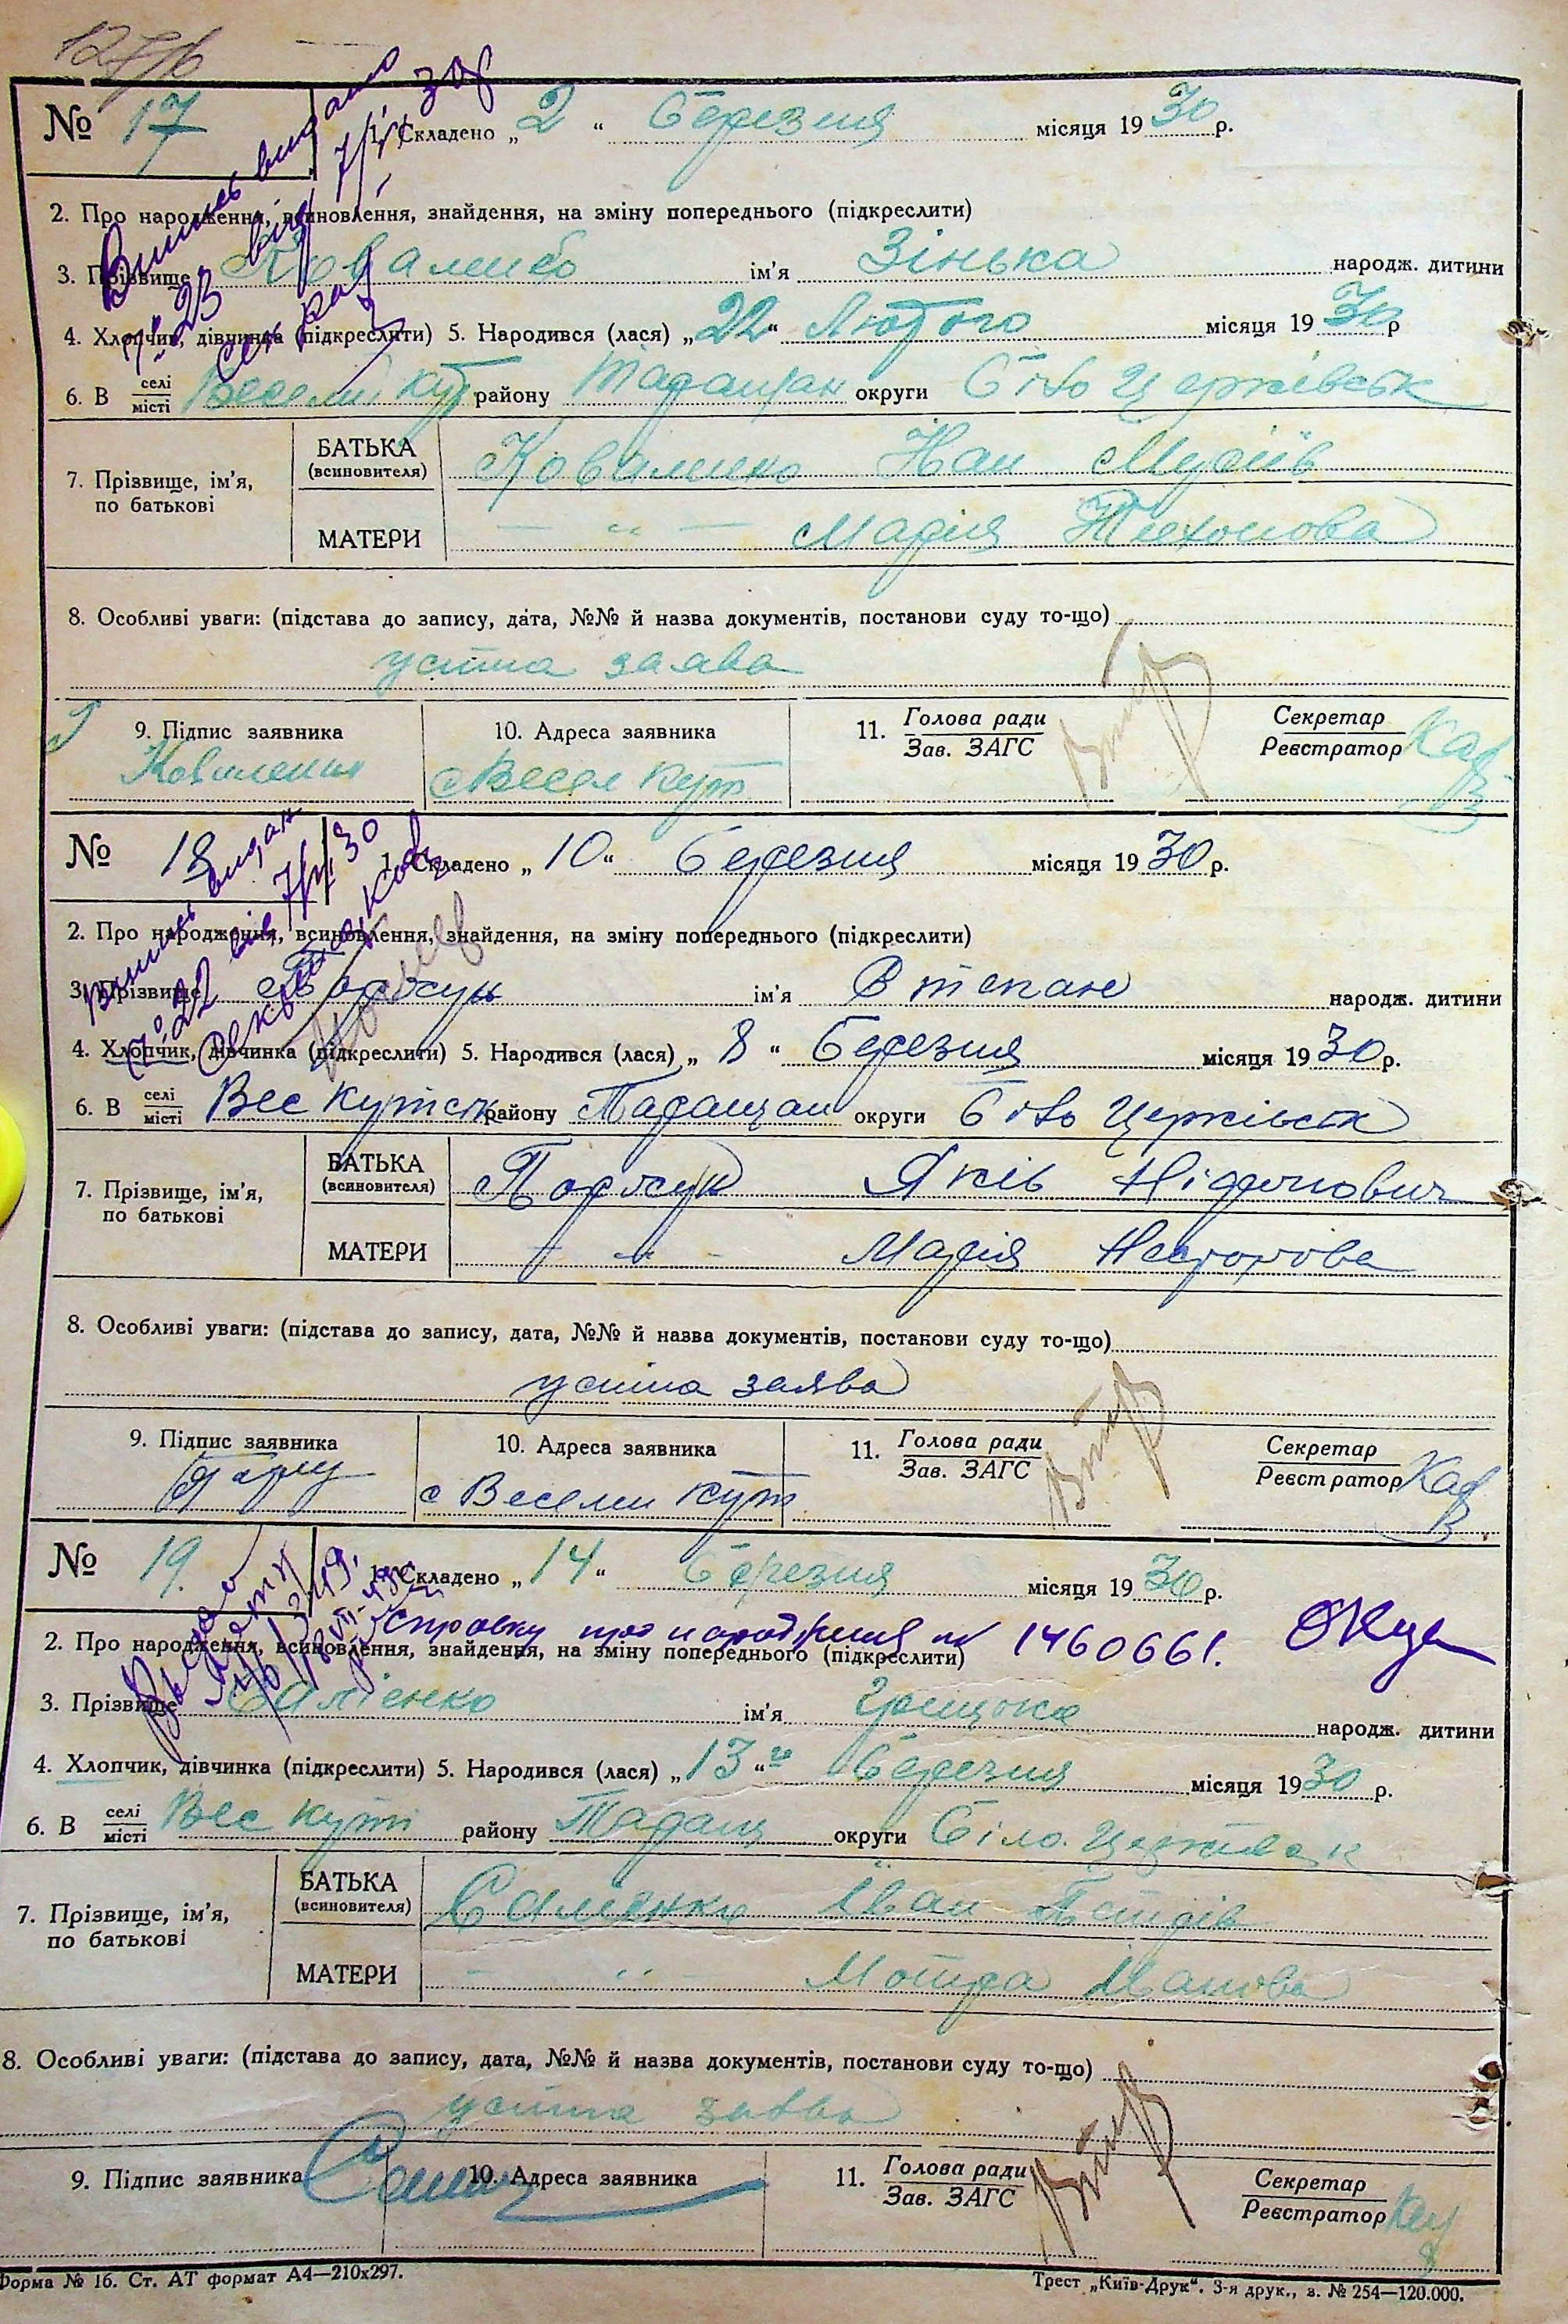 127/б
№ 17
1. Складено „2“ березня місяця 1930 р.
2. Про народження, всиновлення, знайдення, на зміну попереднього (підкреслити)
3. Прізвище Коваленко ім'я Зінька народж. дитини
4. Хлопчик, дівчинка (підкреслити) 5. Народився (лася) „22“ Лютого місяця 1930 р
6. В селі/місті Веселий Кут району Таращан округи Біло Церківськ
7. Прізвище, ім'я, по батькові
БАТЬКА (всиновителя) Коваленко
МАТЕРИ — „ — Марія Тихонова
8. Особливі уваги: (підстава до запису, дата, №№ й назва документів, постанови суду то-що)
устна заява
9. Підпис заявника
10. Адреса заявника
11. Голова ради
Зав. ЗАГС
Секретар
Реєстратор
с Весел Кут
№ 18
1. Складено „10“ березня місяця 1930 р.
2. Про народження, всиновлення, знайдення, на зміну попереднього (підкреслити)
3. Прізвище ім'я Степан народж. дитини
4. Хлопчик, дівчинка (підкреслити) 5. Народився (лася) „8“ березня місяця 1930 р.
6. В селі/місті Вес Кутск району Таращан округи Біло Церківськ
7. Прізвище, ім'я, по батькові
БАТЬКА (всиновителя) Яків
МАТЕРИ — „ — Марія
8. Особливі уваги: (підстава до запису, дата, №№ й назва документів, постанови суду то-що)
устна заява
9. Підпис заявника
10. Адреса заявника
11. Голова ради
Зав. ЗАГС
Секретар
Реєстратор
с Весели Кут
№ 19.
1. Складено „14“ березня місяця 1930 р.
справку про народження № 1460661.
2. Про народження, всиновлення, знайдення, на зміну попереднього (підкреслити)
3. Прізвище Самієнко ім'я Грицько народж. дитини
4. Хлопчик, дівчинка (підкреслити) 5. Народився (лася) „13“ березня місяця 1930 р.
6. В селі/місті Вес Куті району Таращ округи Біло. Церківськ
7. Прізвище, ім'я, по батькові
БАТЬКА (всиновителя) Самієнко Іван Петрів
МАТЕРИ — „ — Мотря Іванова
8. Особливі уваги: (підстава до запису, дата, №№ й назва документів, постанови суду то-що)
устна заява
9. Підпис заявника
10. Адреса заявника
11. Голова ради
Зав. ЗАГС
Секретар
Реєстратор
Форма № 16. Ст. АТ формат А4—210х297.
Трест „Київ-Друк“. 3-я друк., з. № 254—120.000.